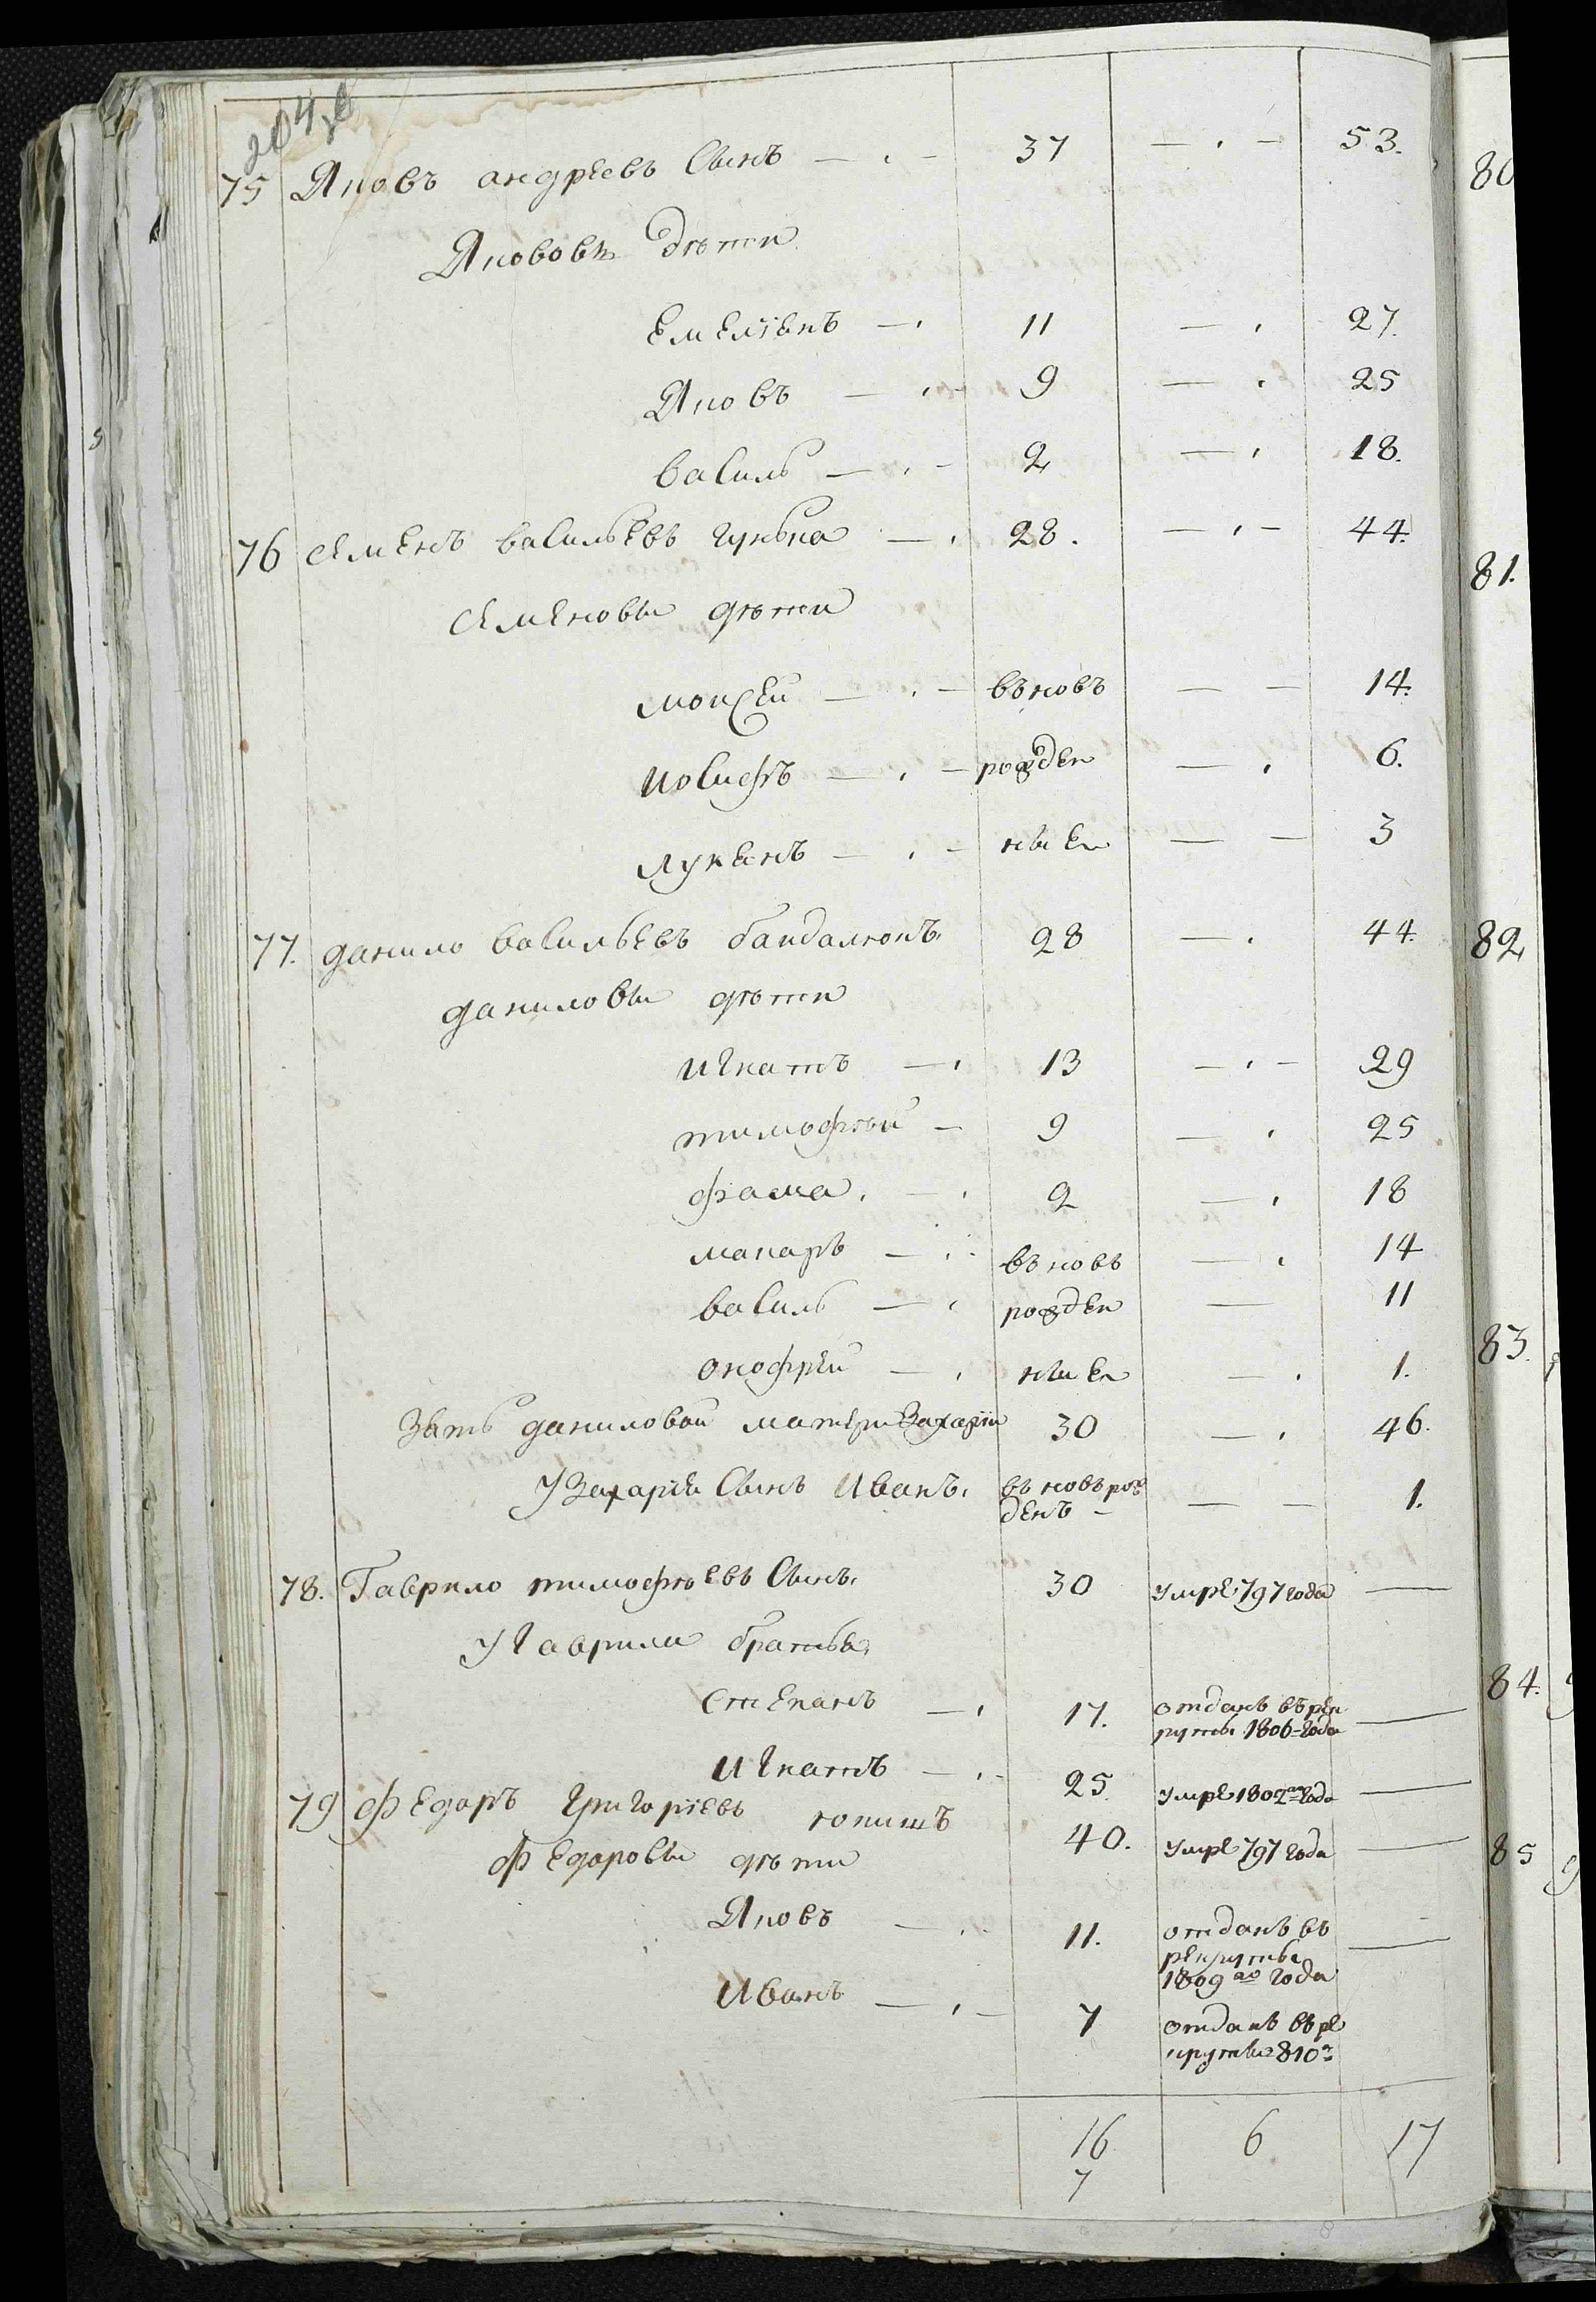 204
75 Яковъ андреевъ Сынъ — 37 — 53.
Якововы дѣти
Емелiянъ — 11 — 27.
Яковъ — 9 — 25
василь — 2 — 18.
76 семенъ васильевъ гунька — 28. — 44.
семеновы дѣти
моисей — въновь — 14.
иосифъ — рожден — 6.
лукьянъ — ные — 3
77. данило васильевъ бандалюкъ 28 — 44.
даниловы дѣти
игнатъ — 13 — 29
тимофѣй — 9 — 25
фама. — 2 — 18
макаръ — въновь — 14
василь — рожден — 11
онофрей — ные — 1.
Зять даниловой матери Захарiй 30 — 46.
У Захарiя Сынъ Иванъ. въновь рож — 1.
денъ —
78. Гаврило тимофѣевъ Сынъ. 30 умре 797 года —
У гаврилы братья.
степанъ — 17. отданъ въ рек —
руты 1806-года
игнатъ — 25. умре 1802го года —
79 федаръ григорiевъ копишъ 40. умре 797 года —
федаровы дѣти
Яковъ — 11. отданъ въ —
рекруты
1809го года
Иванъ — 7 отданъ въ ре
круты 810го
16 6 17
7
80
81.
82
83.
84.
85